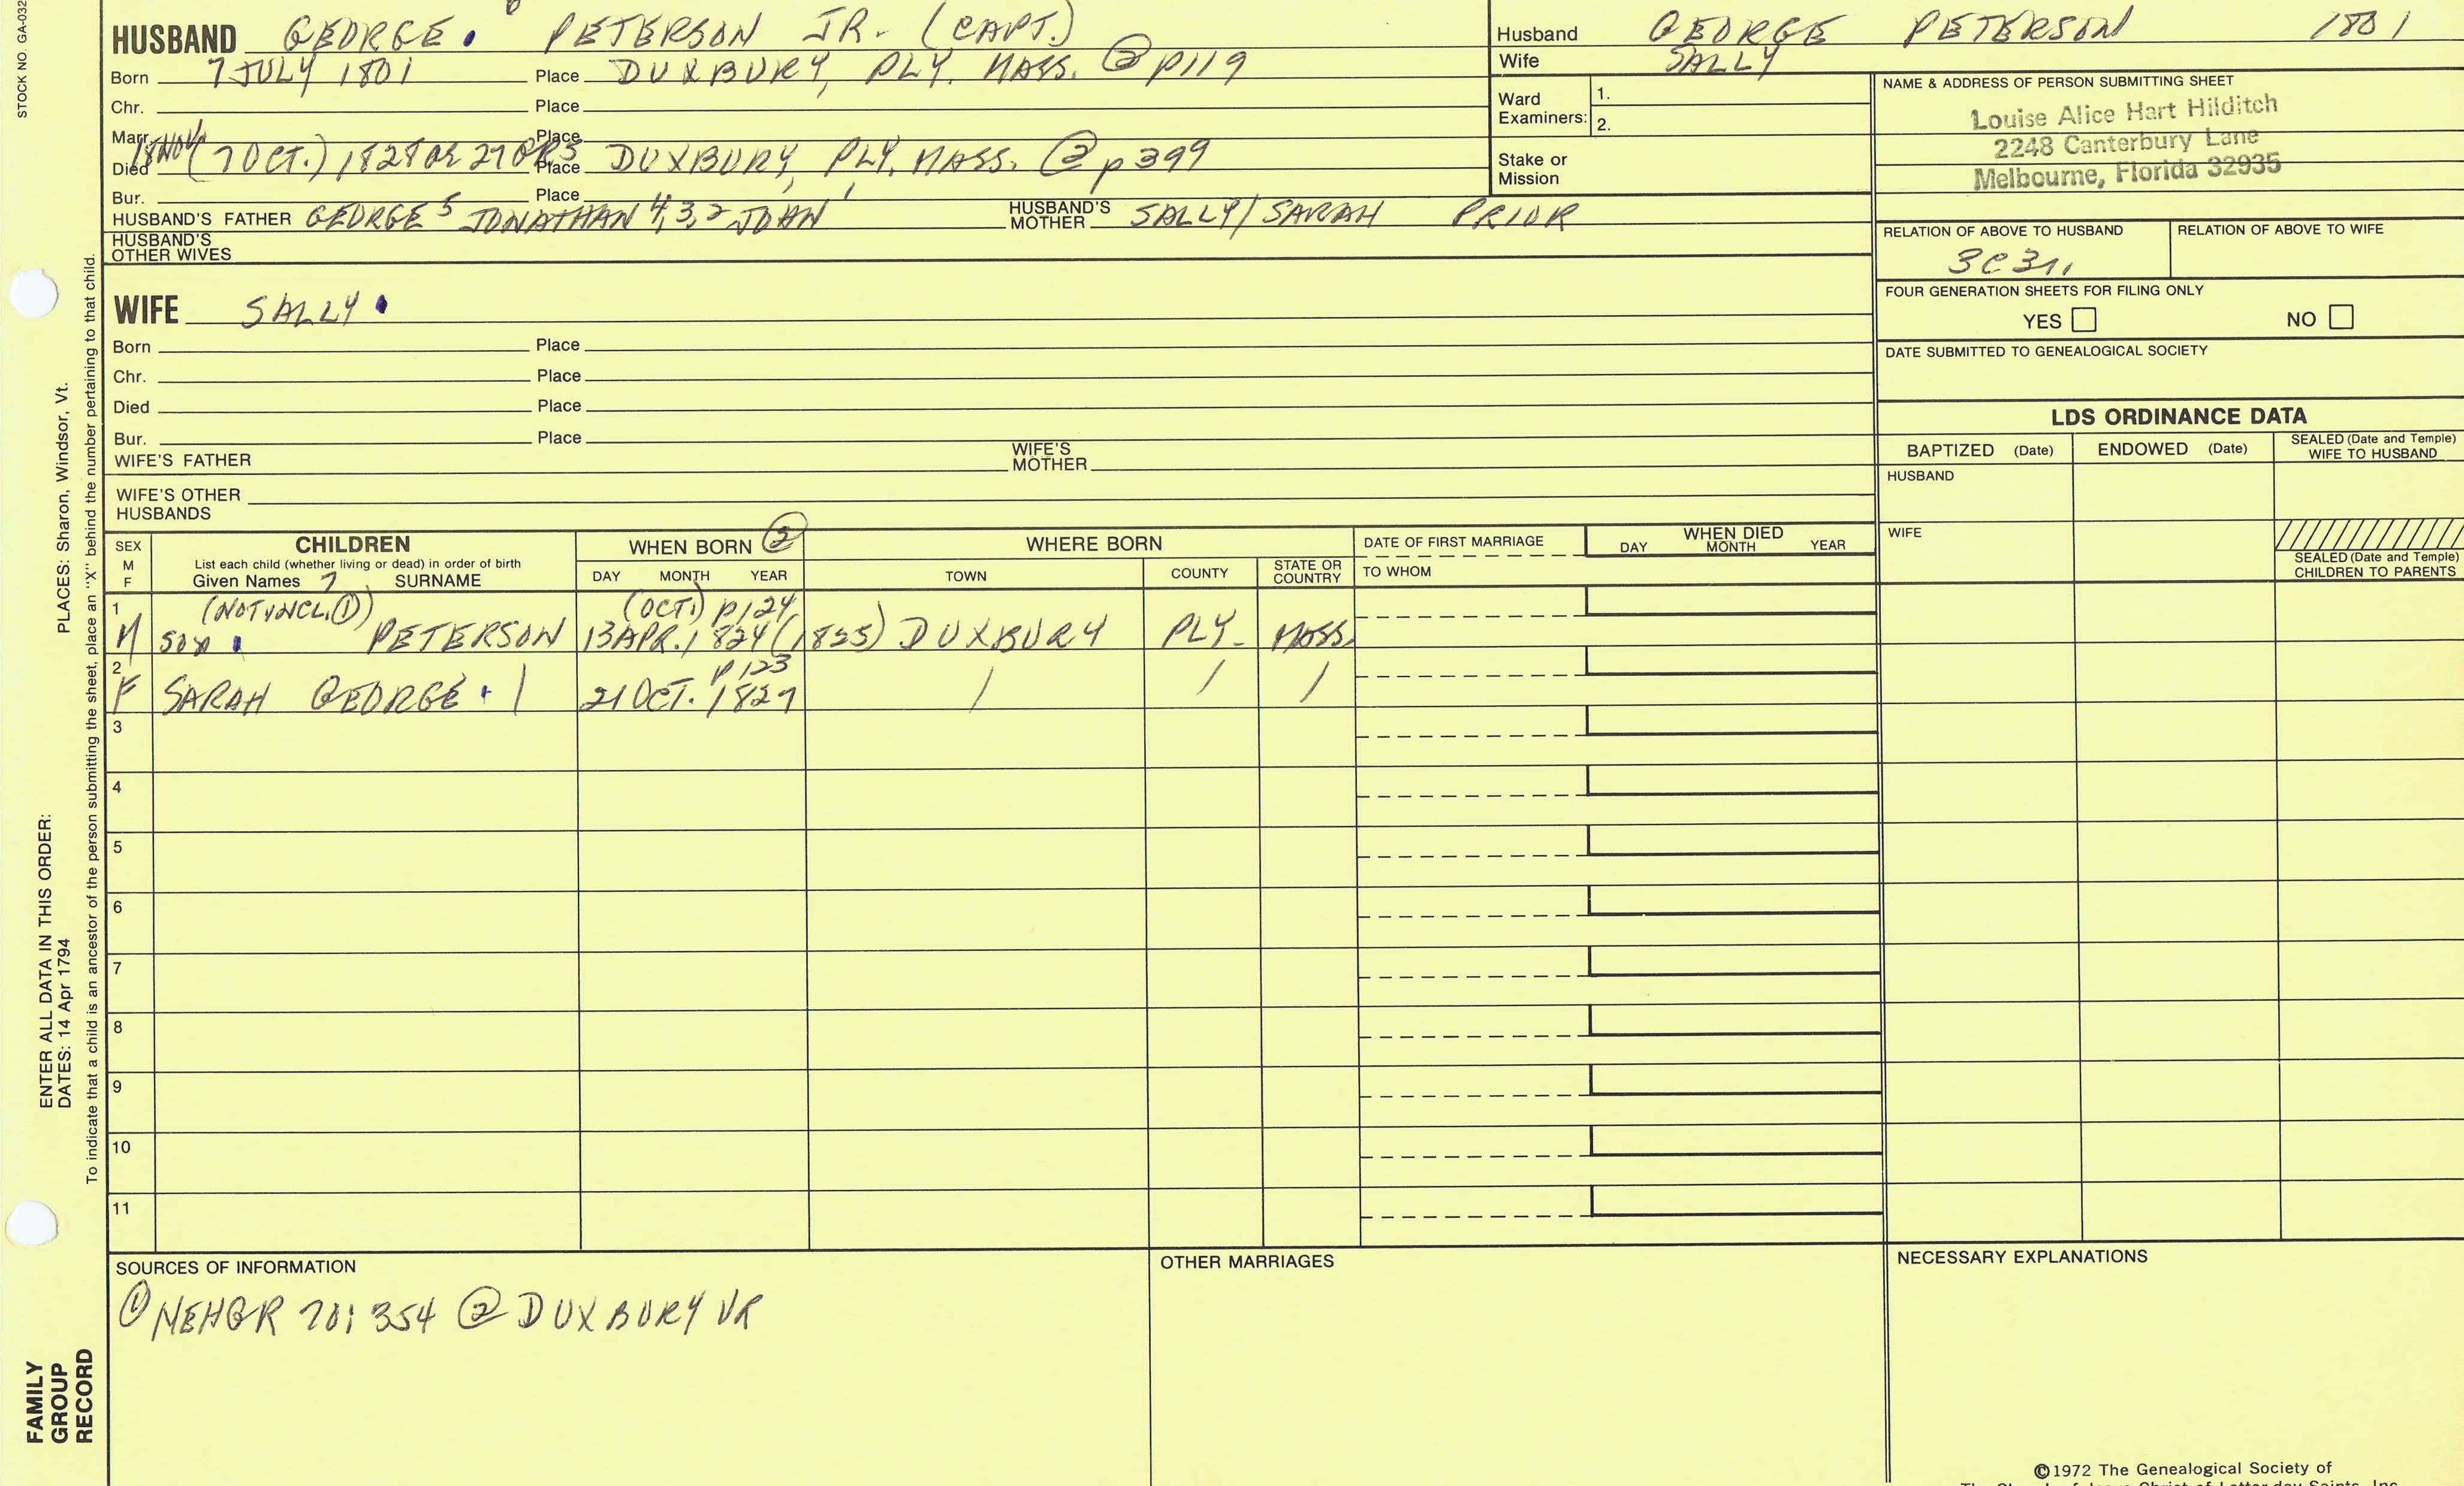 STOCK NO. GA-032
HUSBAND GEORGE 6 PETERSON JR. (CAPT.)
Born 7 JULY 1801 Place DUXBURY, PLY. MASS. ② p119
Chr. Place
Marr. Place
Died 18 NOV (7 OCT.) 1828 OR 27 Place DUXBURY, PLY. MASS. ② p399
Bur. Place
HUSBAND'S FATHER GEORGE 5 JONATHAN 4,3,2 JOHN 1 HUSBAND'S MOTHER SALLY/SARAH PRIOR
HUSBAND'S OTHER WIVES
Husband GEORGE PETERSON 1801
Wife SALLY
Ward Examiners: 1.
2.
Stake or Mission
NAME & ADDRESS OF PERSON SUBMITTING SHEET
Louise Alice Hart Hilditch
2248 Canterbury Lane
Melbourne, Florida 32935
RELATION OF ABOVE TO HUSBAND RELATION OF ABOVE TO WIFE
3C3r
FOUR GENERATION SHEETS FOR FILING ONLY
YES NO
DATE SUBMITTED TO GENEALOGICAL SOCIETY
WIFE SALLY
Born Place
Chr. Place
Died Place
Bur. Place
WIFE'S FATHER WIFE'S MOTHER
WIFE'S OTHER HUSBANDS
LDS ORDINANCE DATA
BAPTIZED (Date) ENDOWED (Date) SEALED (Date and Temple) WIFE TO HUSBAND
HUSBAND
WIFE
SEALED (Date and Temple) CHILDREN TO PARENTS
SEX M F CHILDREN WHEN BORN ② WHERE BORN DATE OF FIRST MARRIAGE WHEN DIED
List each child (whether living or dead) in order of birth
Given Names 7 SURNAME DAY MONTH YEAR TOWN COUNTY STATE OR COUNTRY TO WHOM DAY MONTH YEAR
1 (NOT INCL. ①) (OCT.) p124
M SON PETERSON 13 APR. 1824 (1825) DUXBURY PLY. MASS.
2 p123
F SARAH GEORGE 21 OCT. 1827
3
4
5
6
7
8
9
10
11
SOURCES OF INFORMATION OTHER MARRIAGES NECESSARY EXPLANATIONS
① NEHGR 70:354 ② DUXBURY VR
©1972 The Genealogical Society of
The Church of Jesus Christ of Latter-day Saints, Inc.
PLACES: Sharon, Windsor, Vt.
ENTER ALL DATA IN THIS ORDER:
DATES: 14 Apr 1794
To indicate that a child is an ancestor of the person submitting the sheet, place an "X" behind the number pertaining to that child.
FAMILY
GROUP
RECORD